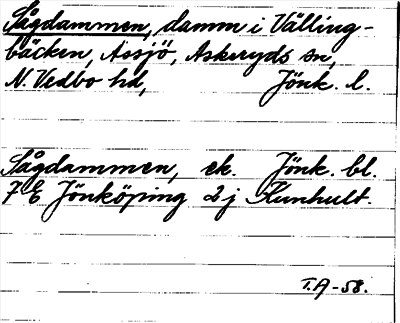 Sågdammen, damm i Välling-
bäcken, Assjö, Askeryds sn,
N. Vedbo hd, Jönk. l.
Sågdammen, ek. Jönk. bl.
7 E Jönköping 2 j Kunhult.
T.A-58.